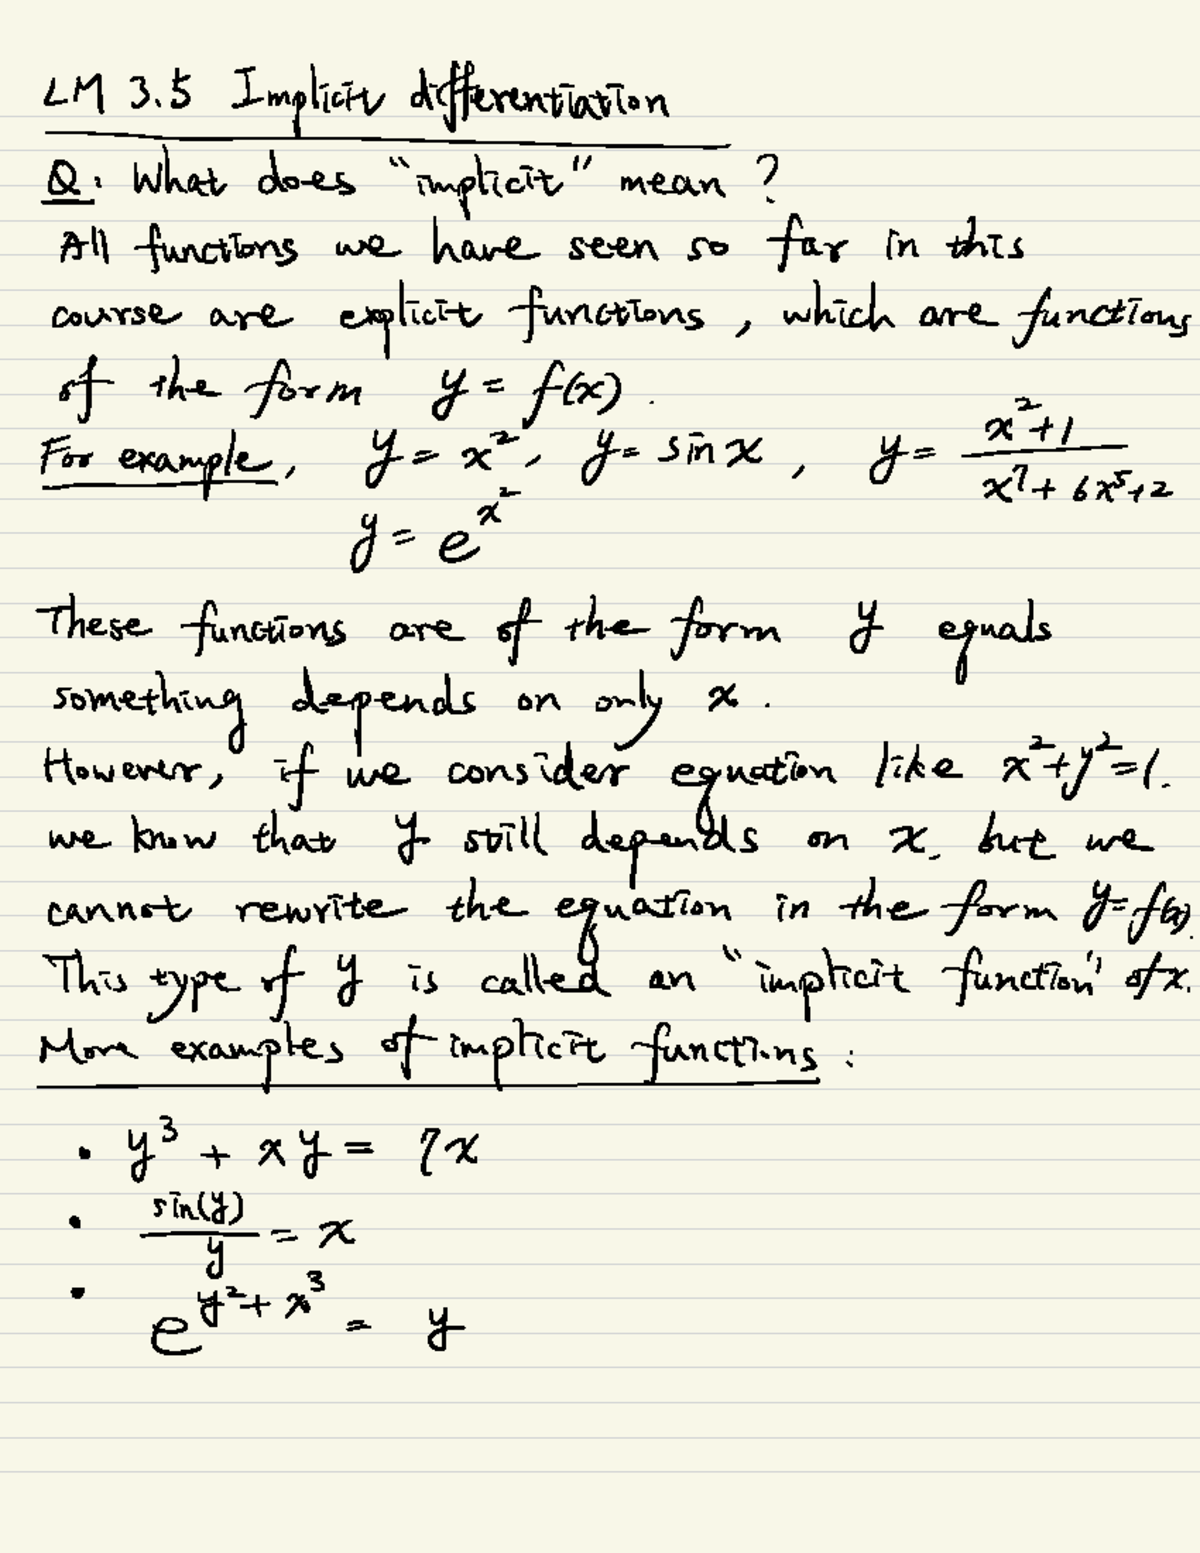 LM 3.5 Implicit differentiation
Q: What does "implicit" mean?
All functions we have seen so far in this
course are explicit functions, which are functions
of the form y = f(x).
For example, y = x², y = sin x, y = (x²+1)/(x⁷+6x⁵+2)
y = e^(x²)
These functions are of the form y equals
something depends on only x.
However, if we consider equation like x²+y²=1.
we know that y still depends on x, but we
cannot rewrite the equation in the form y=f(x).
This type of y is called an "implicit function" of x.
More examples of implicit functions:
• y³ + xy = 7x
• sin(y)/y = x
• e^(y²+x³) = y